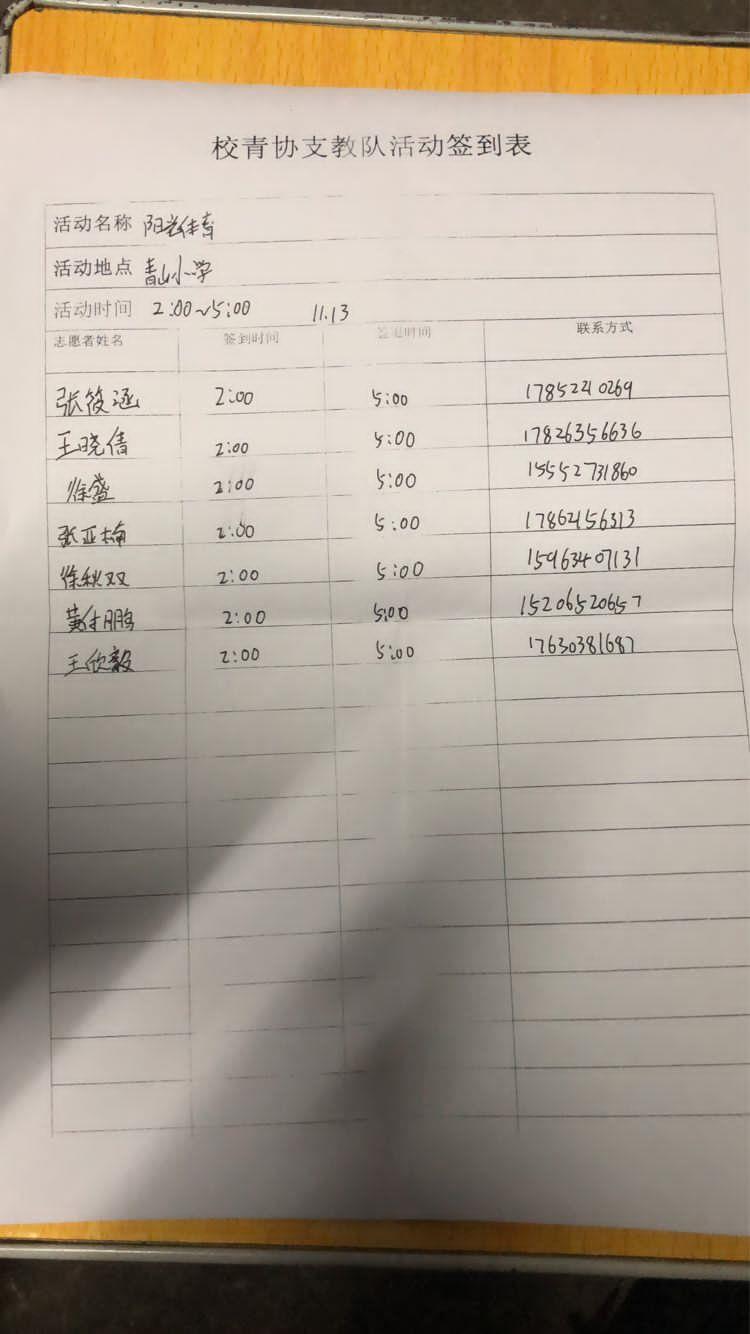 校青协支教队活动签到表
活动名称 阳光体育
活动地点 青山小学
活动时间 2:00~5:00 11.13
志愿者姓名 签到时间 签退时间 联系方式
张筱涵 2:00 5:00 17852210269
王晓倩 2:00 5:00 17826356636
徐盛 2:00 5:00 15552731860
张亚楠 2:00 5:00 17862156313
徐秋双 2:00 5:00 15963407131
黄付鹏 2:00 5:00 15206520657
王欣毅 2:00 5:00 17630381687